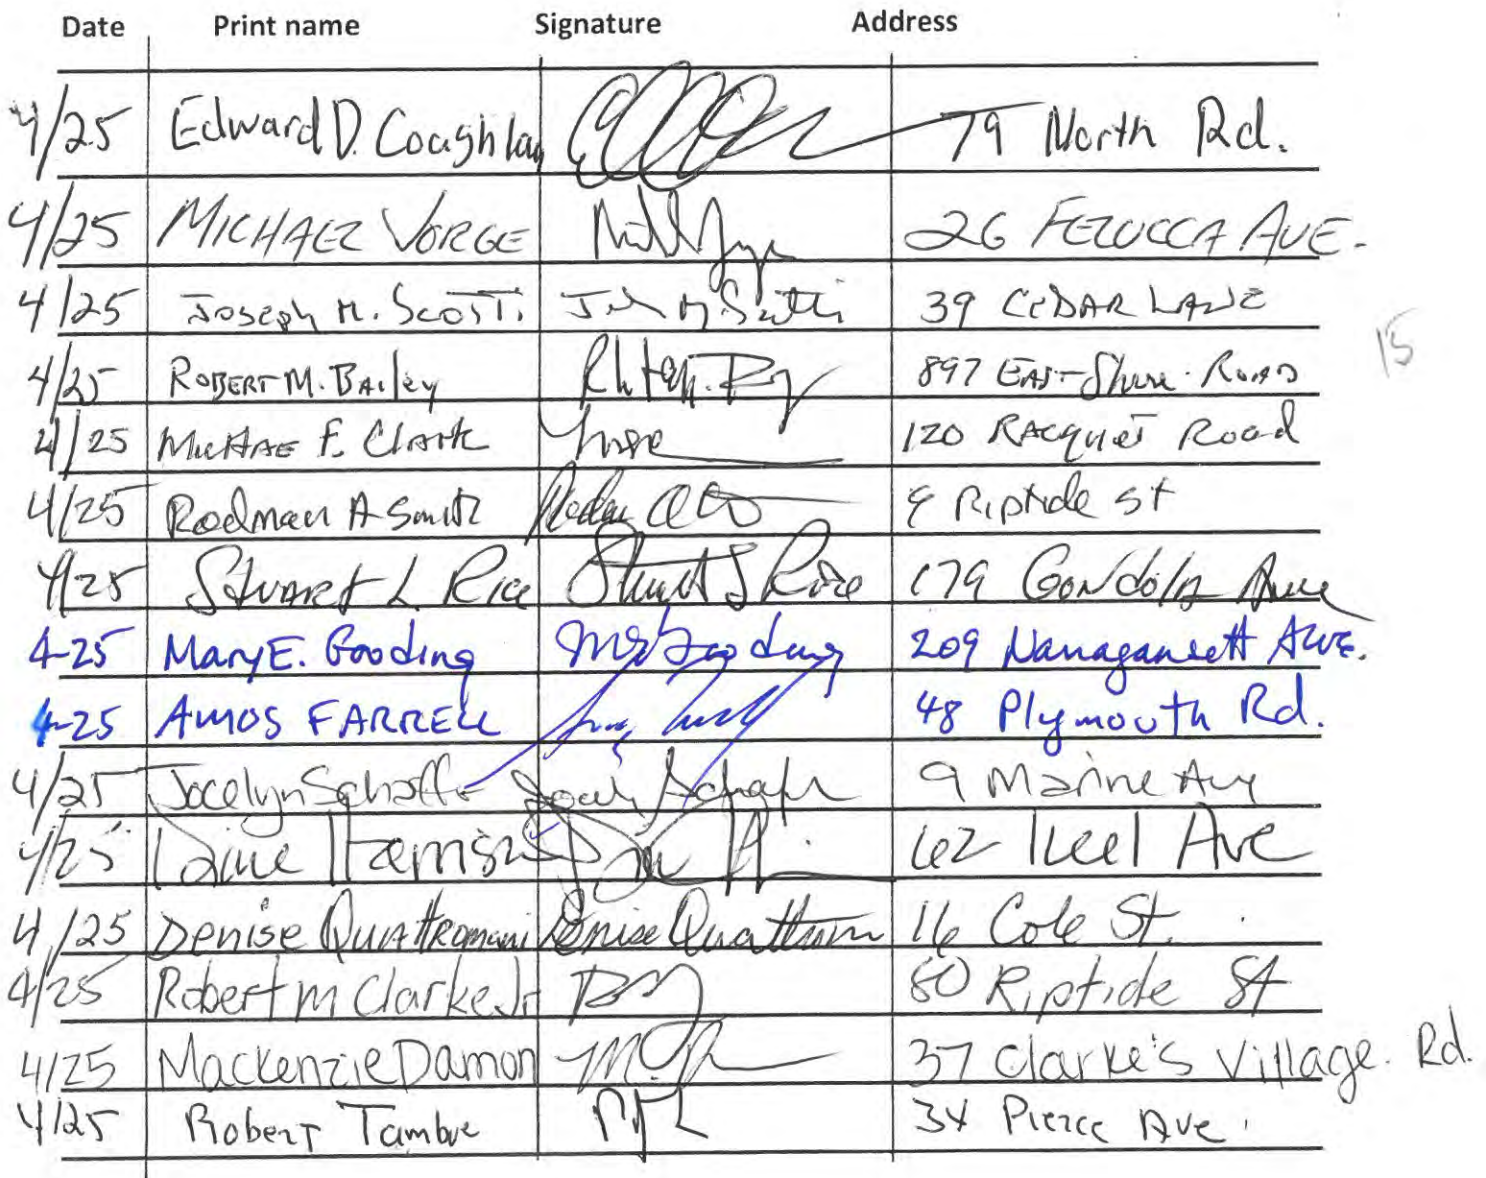 Date Print name Signature Address
4/25 Edward D. Coughlan 79 North Rd.
4/25 MICHAEL VORGE 26 FELUCCA AVE.
4/25 Joseph M. Scotti 39 CEDAR LANE
4/25 ROBERT M. BAILEY 897 EAST Shore Road
15
4/25 Michae F. Clark 120 RAcquet Road
4/25 Rodman A Smith 9 Riptide St
4/25 Stuart L. Rice Stuart L Rice 179 Gondola Ave
4-25 Mary E. Gooding ME Gooding 209 Narragansett Ave.
4-25 AMOS FARRELL 48 Plymouth Rd.
4/25 Jocelyn Schaffer 9 Marine Ave
4/25 Harrison 62 Keel Ave
4/25 Denise Quattromani Denise Quattrom 16 Cole St.
4/25 Robert M Clarke Jr 80 Riptide St
4/25 Mackenzie Damon 37 Clarke's Village Rd.
4/25 Robert Tambue 34 Pierce Ave.